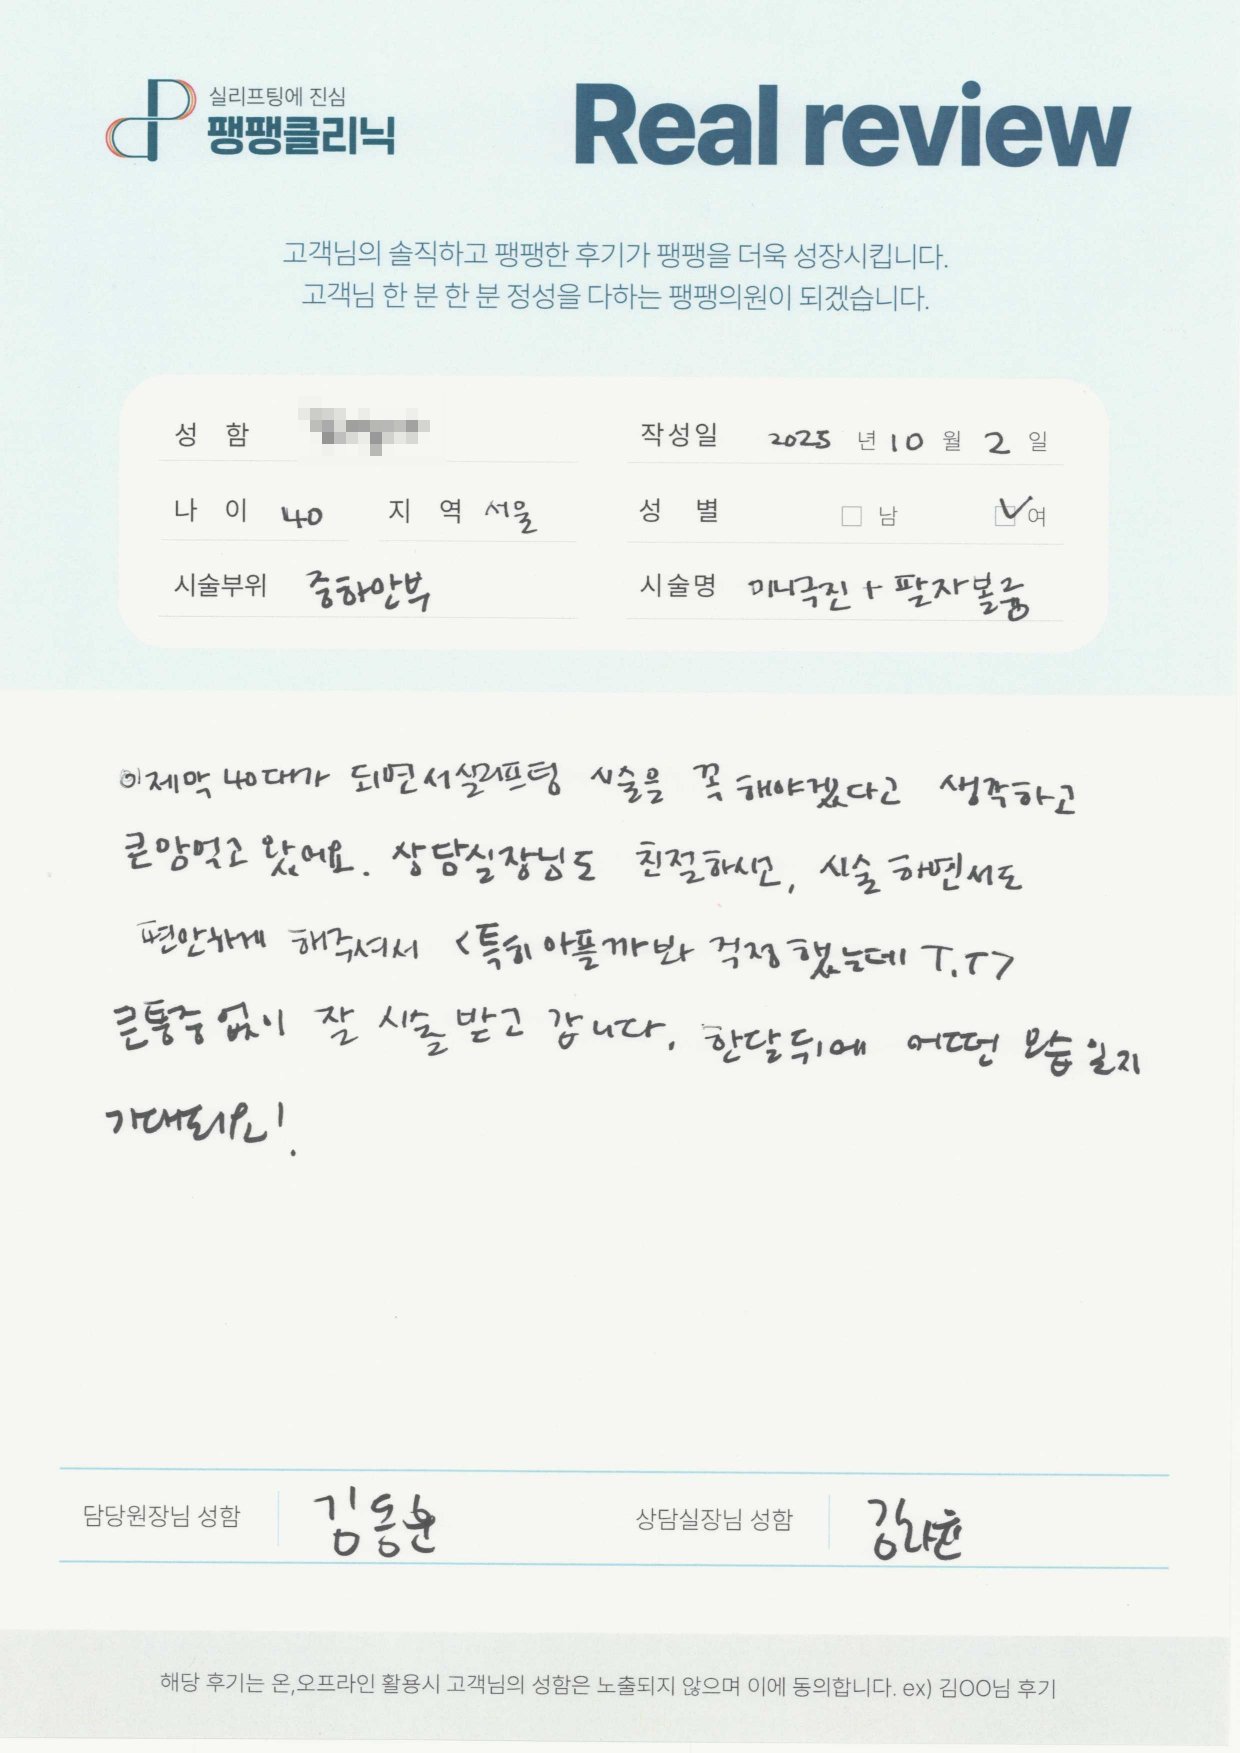 실리프팅에 진심
팽팽클리닉
Real review
고객님의 솔직하고 팽팽한 후기가 팽팽을 더욱 성장시킵니다.
고객님 한 분 한 분 정성을 다하는 팽팽의원이 되겠습니다.
성 함 작성일 2025 년 10 월 2 일
나 이 40 지 역 서울 성 별 남 여
시술부위 중하안부 시술명 미니극진 + 팔자볼륨
이제막 40대가 되면서 실리프팅 시술을 꼭 해야겠다고 생각하고
큰맘먹고 왔어요. 상담실장님도 친절하시고, 시술 하면서도
편안하게 해주셔서 <특히 아플까봐 걱정했는데 T.T>
큰통증 없이 잘 시술 받고 갑니다. 한달뒤에 어떤 모습일지
기대되요!
담당원장님 성함 김동훈 상담실장님 성함
해당 후기는 온,오프라인 활용시 고객님의 성함은 노출되지 않으며 이에 동의합니다. ex) 김OO님 후기